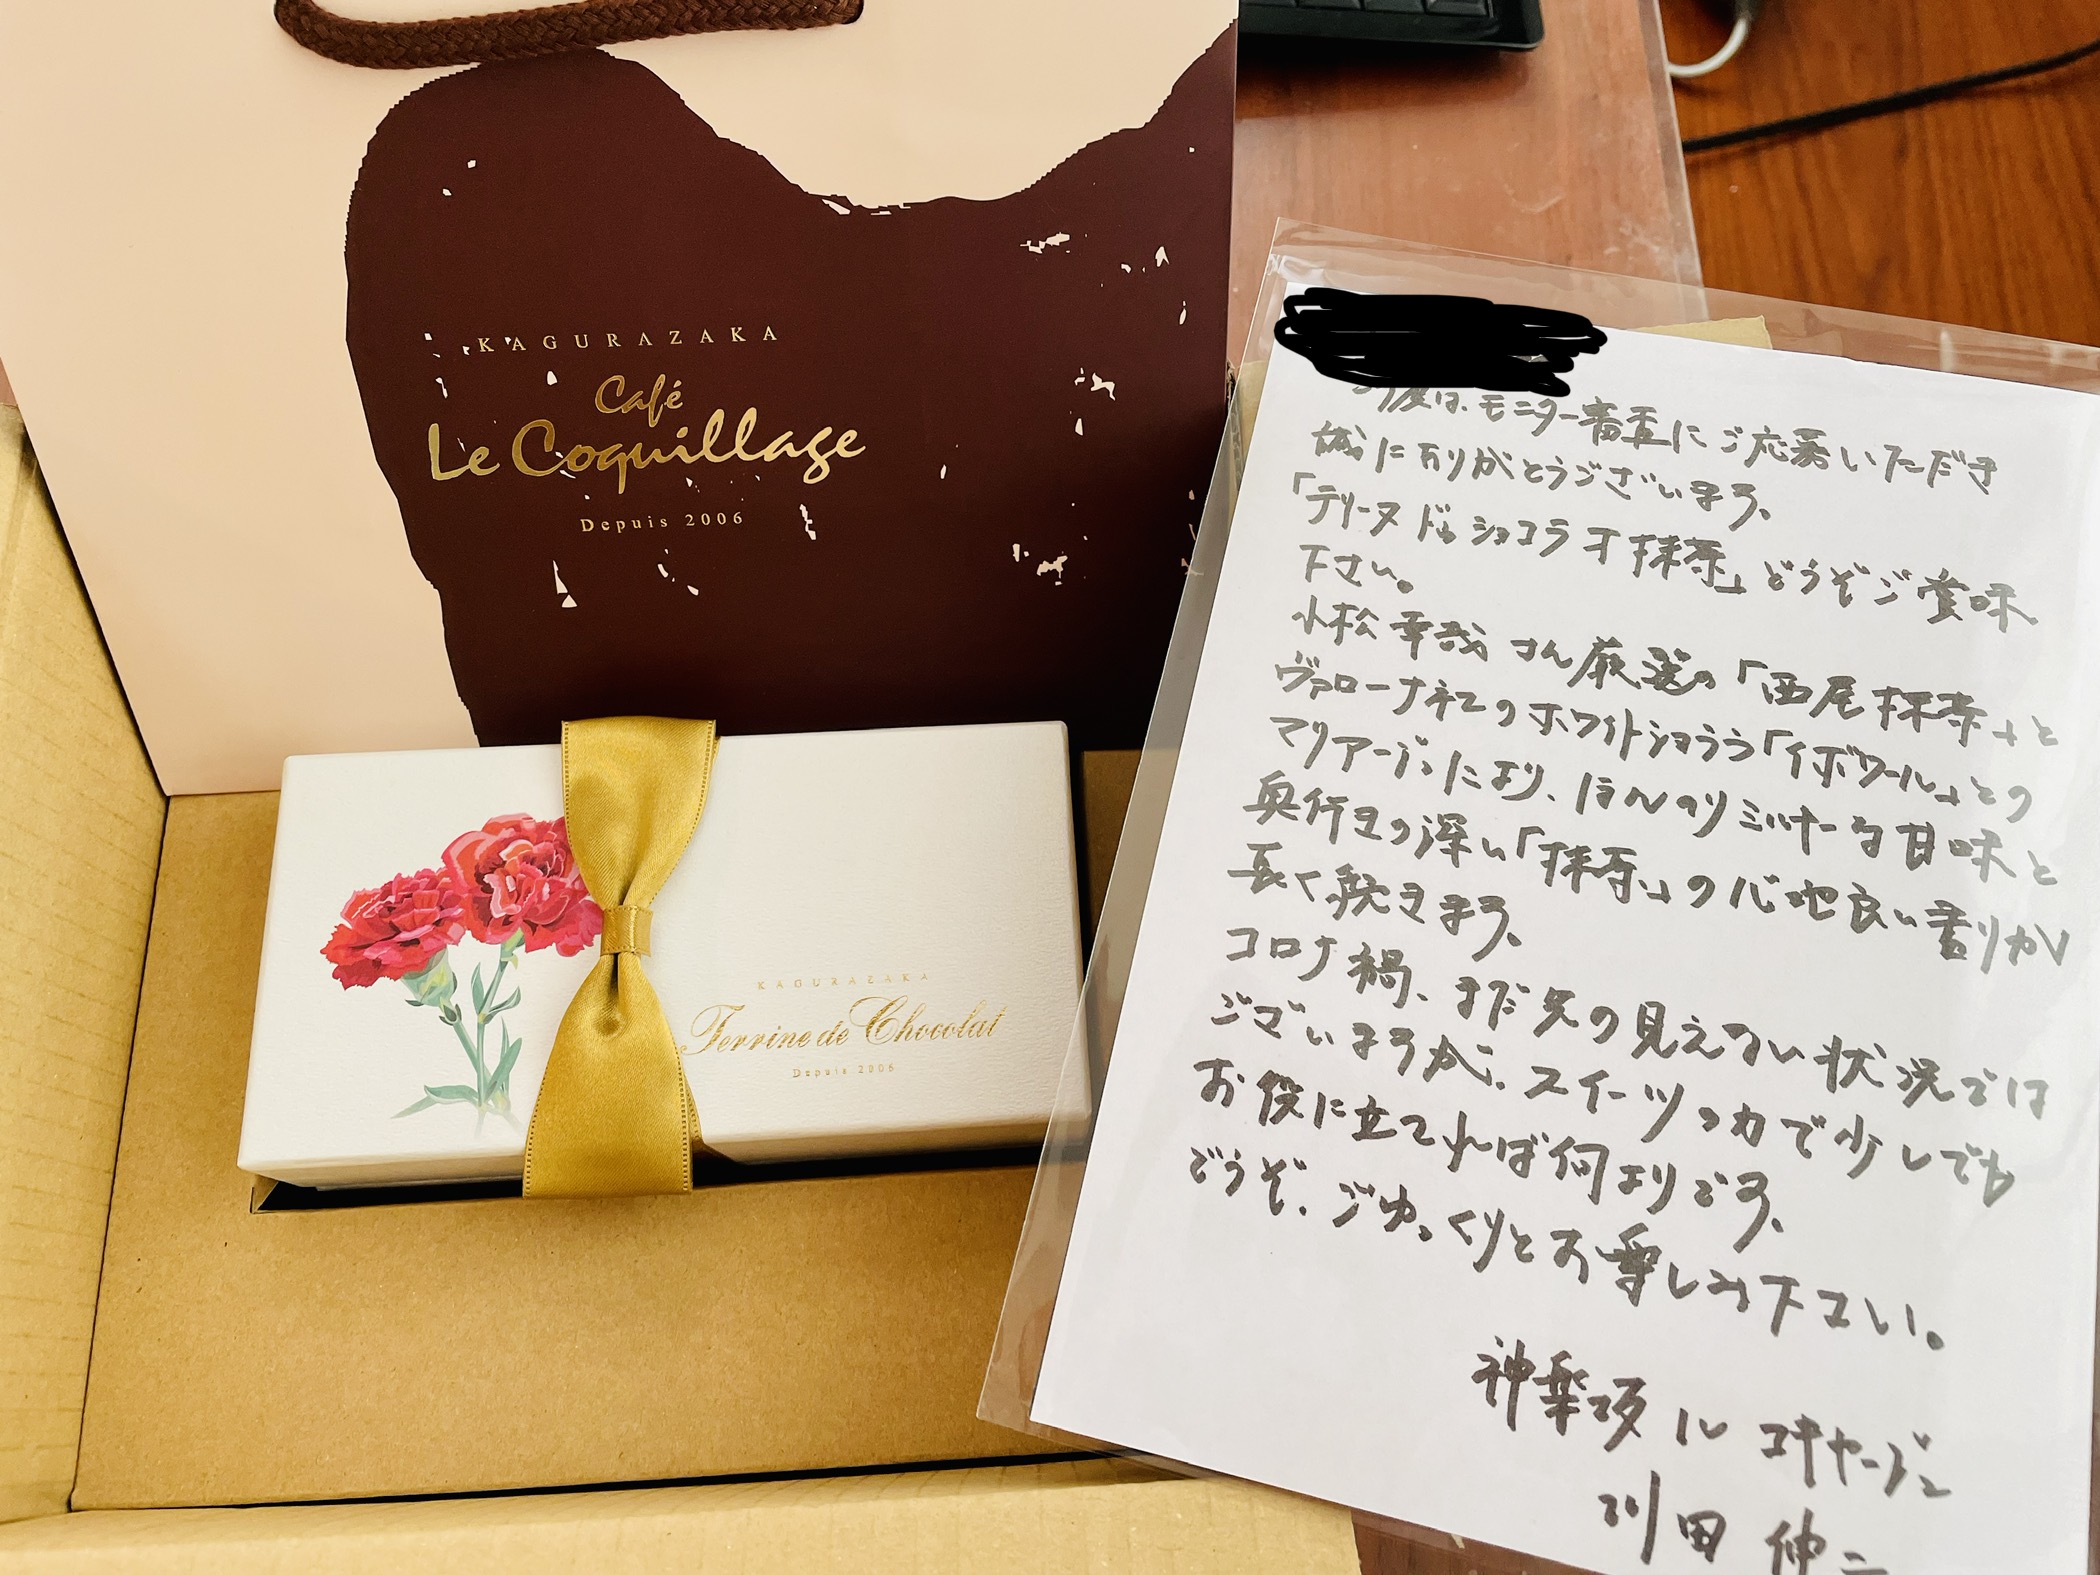 KAGURAZAKA
Café
Le Coquillage
Depuis 2006
KAGURAZAKA
Terrine de Chocolat
Depuis 2006
この度は、モニター審査にご応募いただき
誠にありがとうございます。
「テリーヌ ドゥ ショコラ オ 抹茶」どうぞご賞味
下さい。
小松 幸哉 さん厳選の「西尾抹茶」と
ヴァローナ社のホワイトショコララ「イボワール」との
マリアージュにより、ほんのりミルキーな甘味と
奥行きの深い「抹茶」の心地良い香りが
長く続きます。
コロナ禍、まだ先の見えない状況では
ございますが、スイーツの力で少しでも
お役に立てれば何よりです。
どうぞ、ごゆっくりとお楽しみ下さい。
神楽坂 ル コキヤージュ
川田 伸二